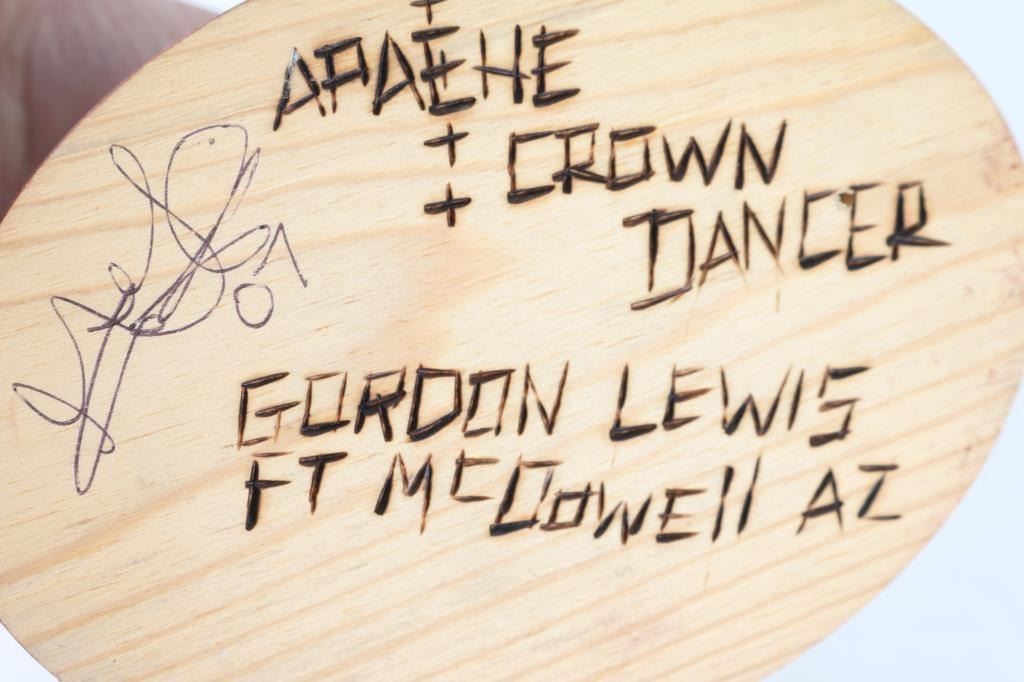 APACHE
CROWN
DANCER
GORDON LEWIS
FT MCDOWell AZ